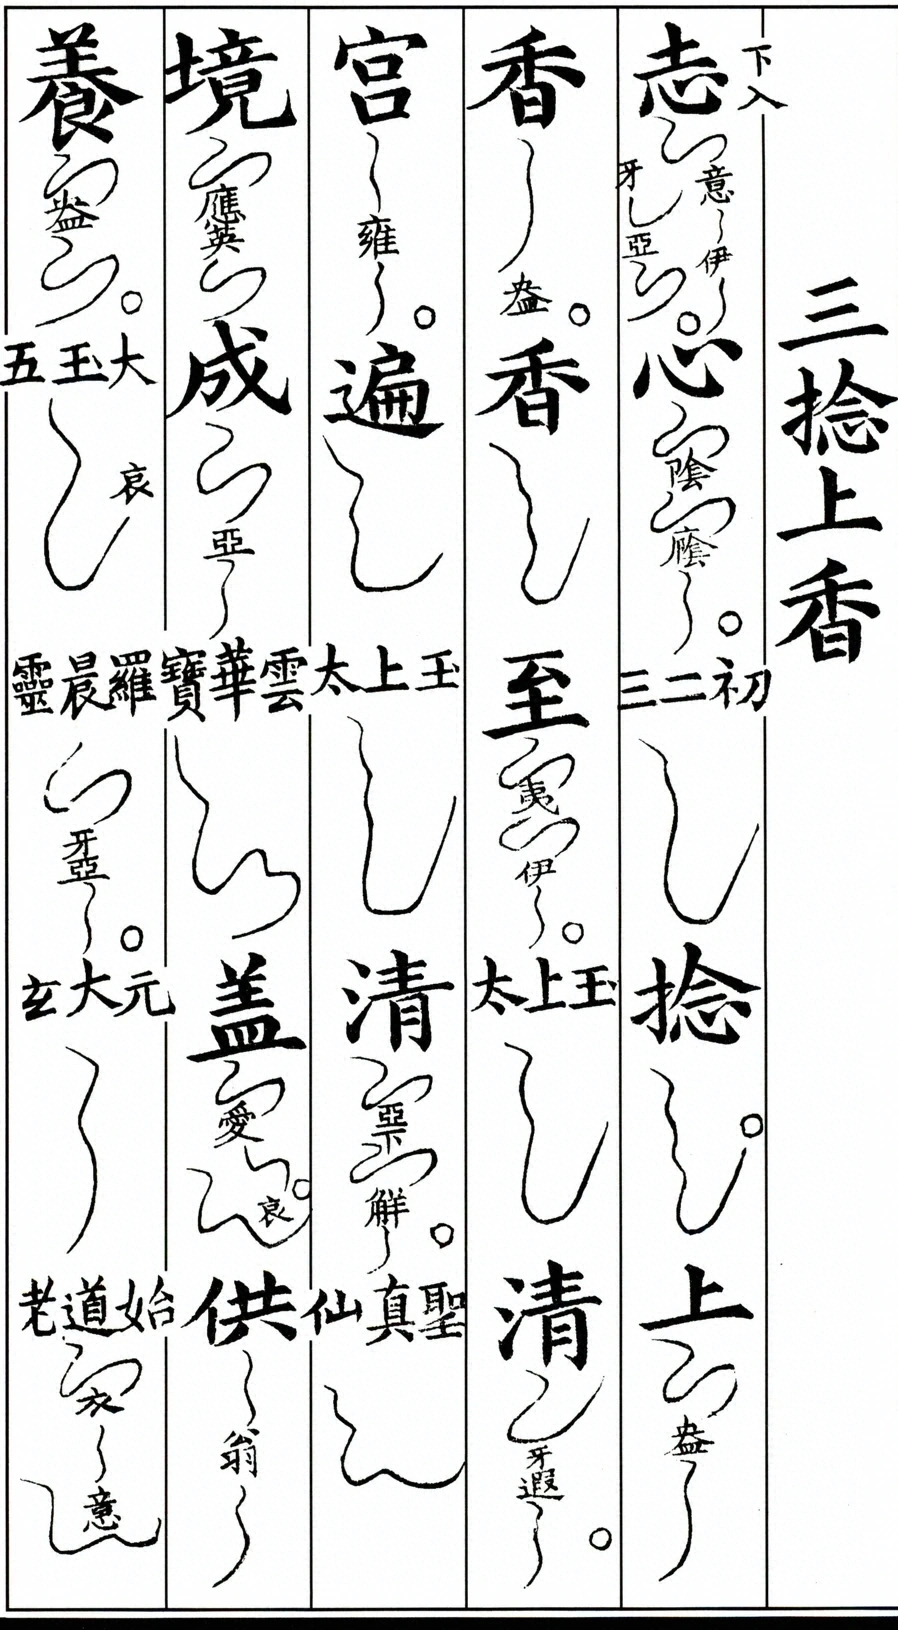 三捻上香
下入志意伊牙亞心陰廕初二三捻上盎
香盎香至夷伊玉上太清牙遐
宮雍遍玉上太清亞下聖真仙
境應英成亞雲華寶盖愛哀供翁
養盎大玉五哀羅晨靈牙亞元大玄始道老衣意